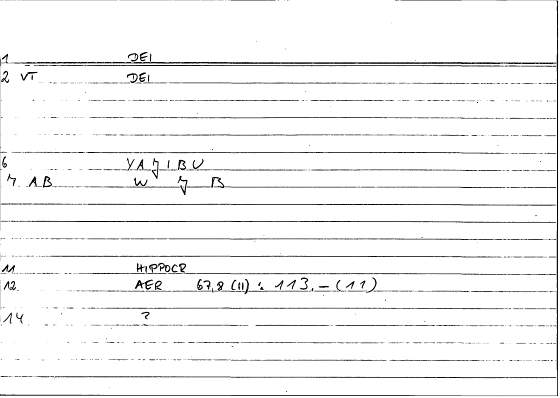 1 DEI
2 VT DEI
6 YAǦIBU
7 AB W Ǧ B
11 HIPPOCR
12 AER 67,8 (11) : 113.-(11)
14 ?